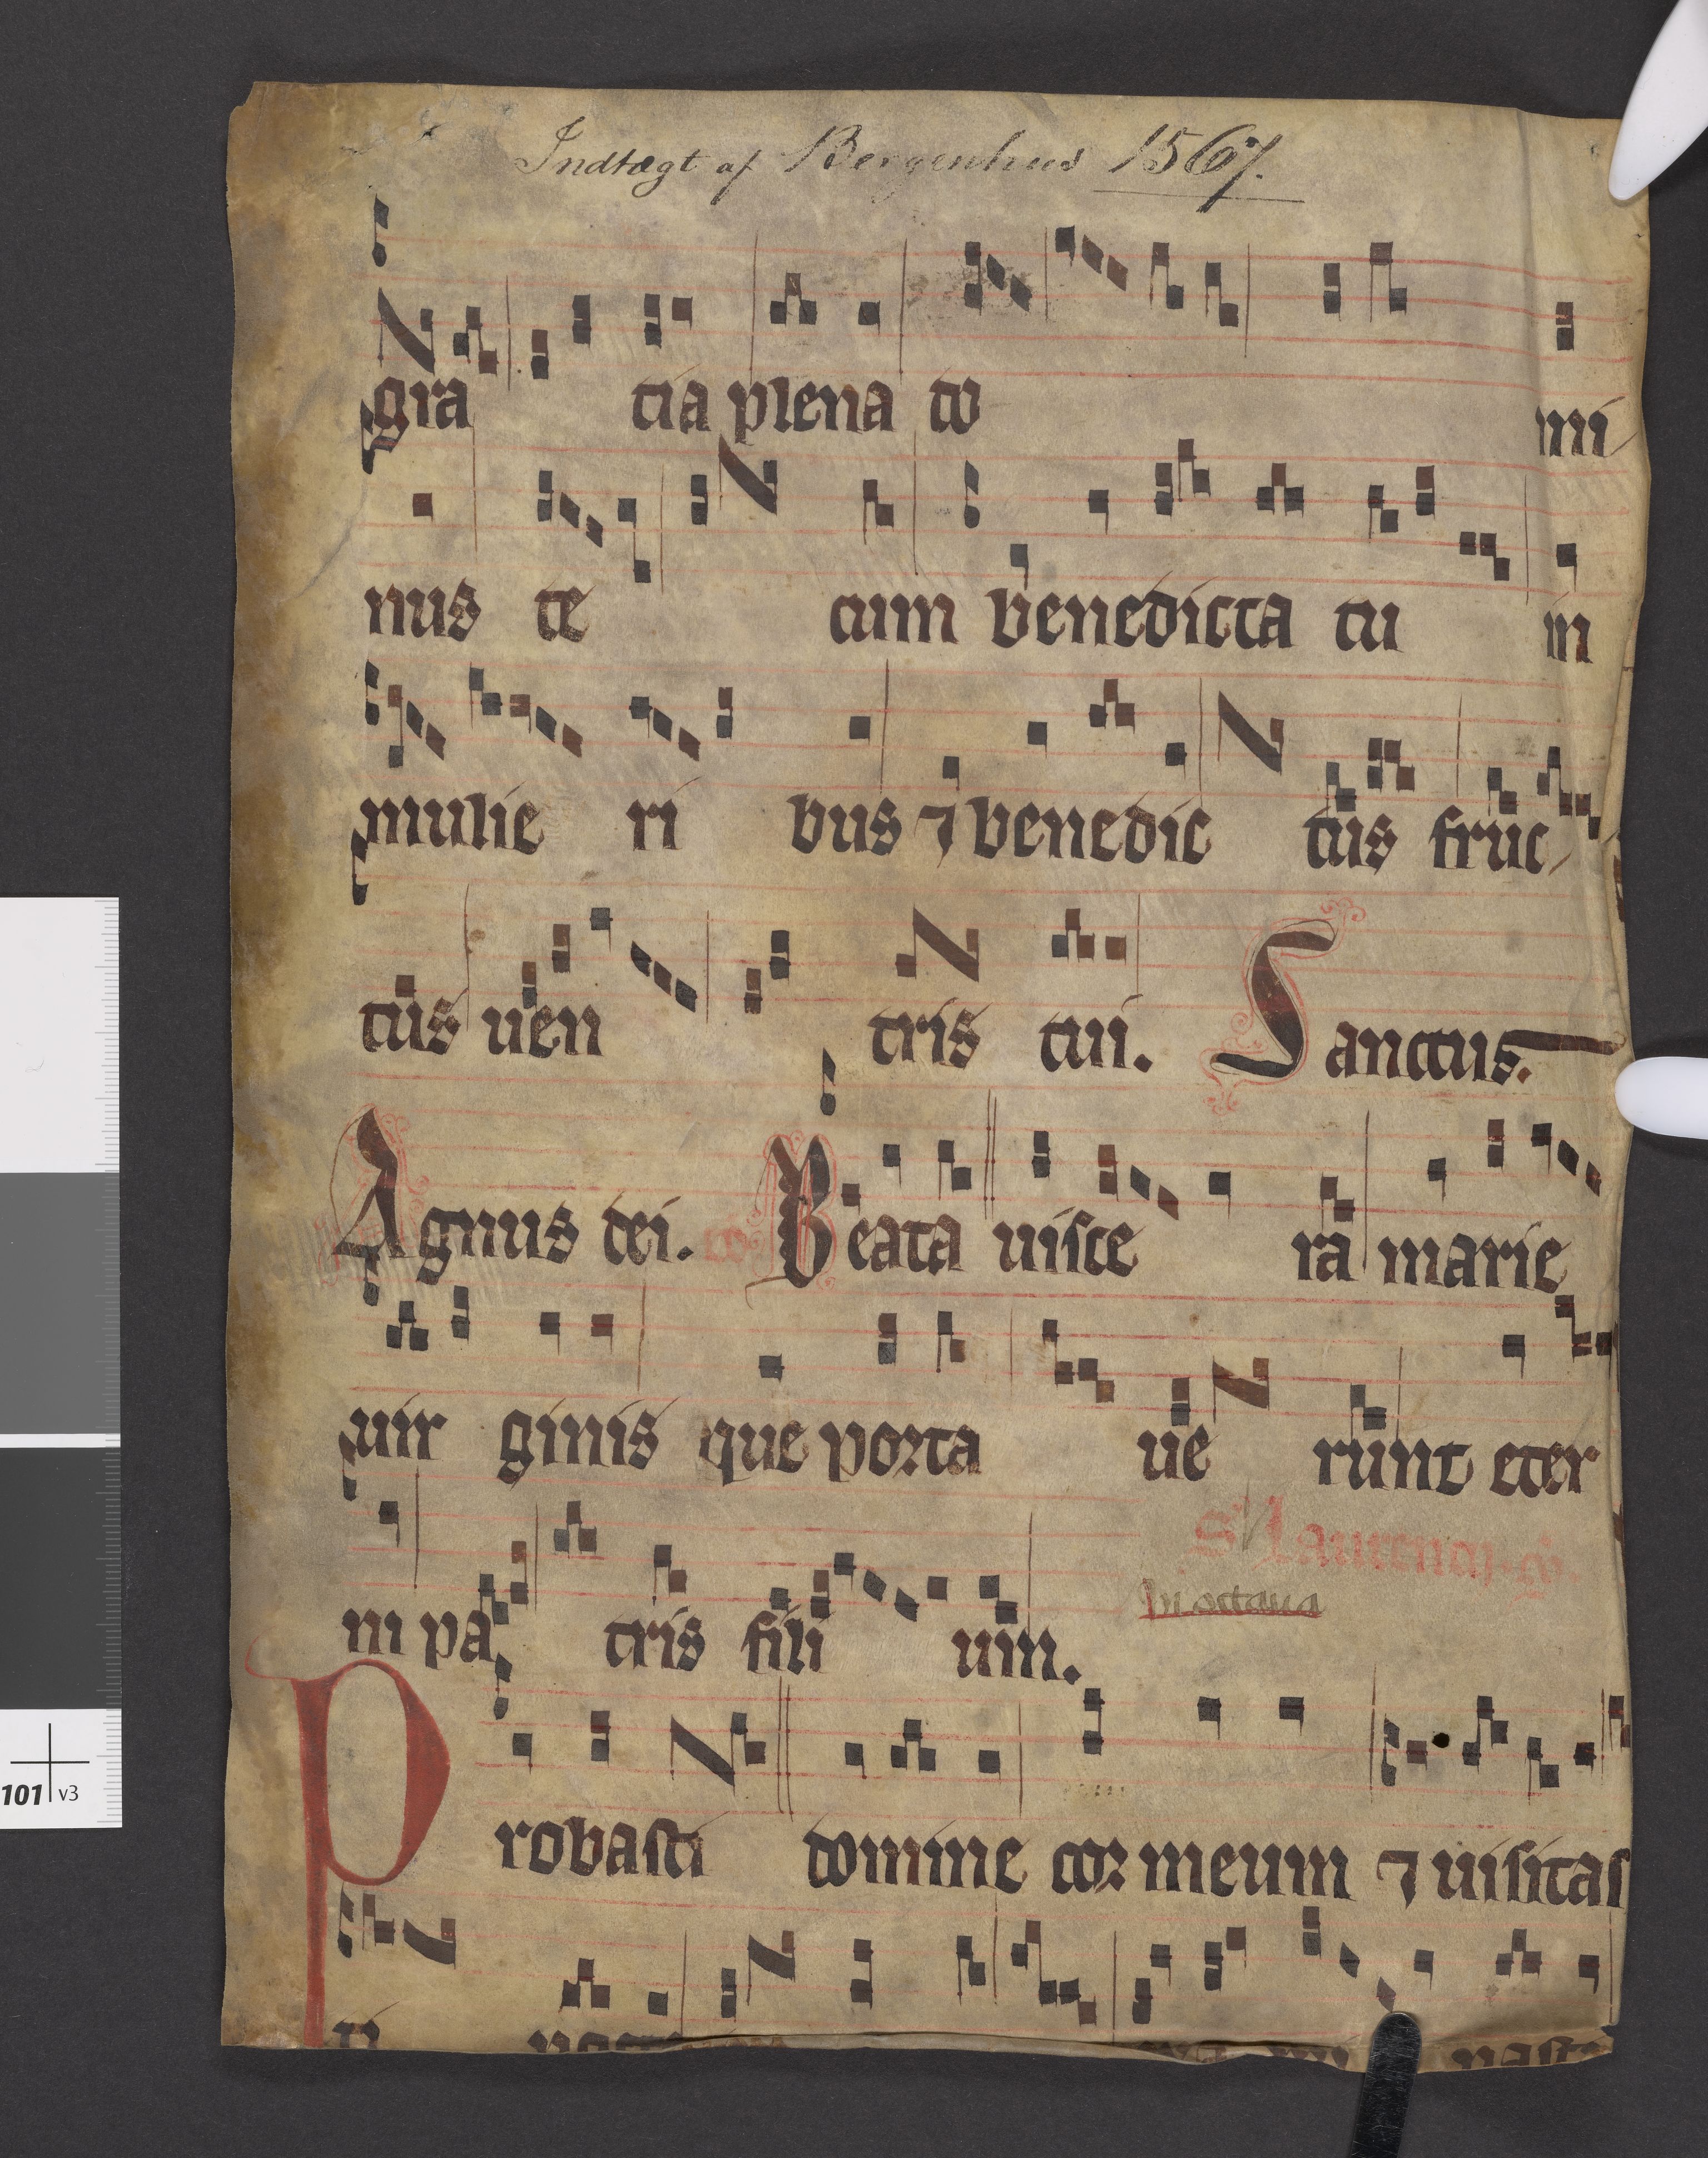 Indtægt af Bergenhus 1567.
gra tia plena do mi
nus te cum benedicta tu in
mulie ri bus ⁊ benedic tus fruc
tus uen tris tui. Sanctus.
Agnus dei. co Beata uisce ra marie
uir ginis que porta ue runt eter
ni pa tris fili um.
S' Laurencij.
In octaua
Probasti domine cor meum ⁊ uisitas
ti